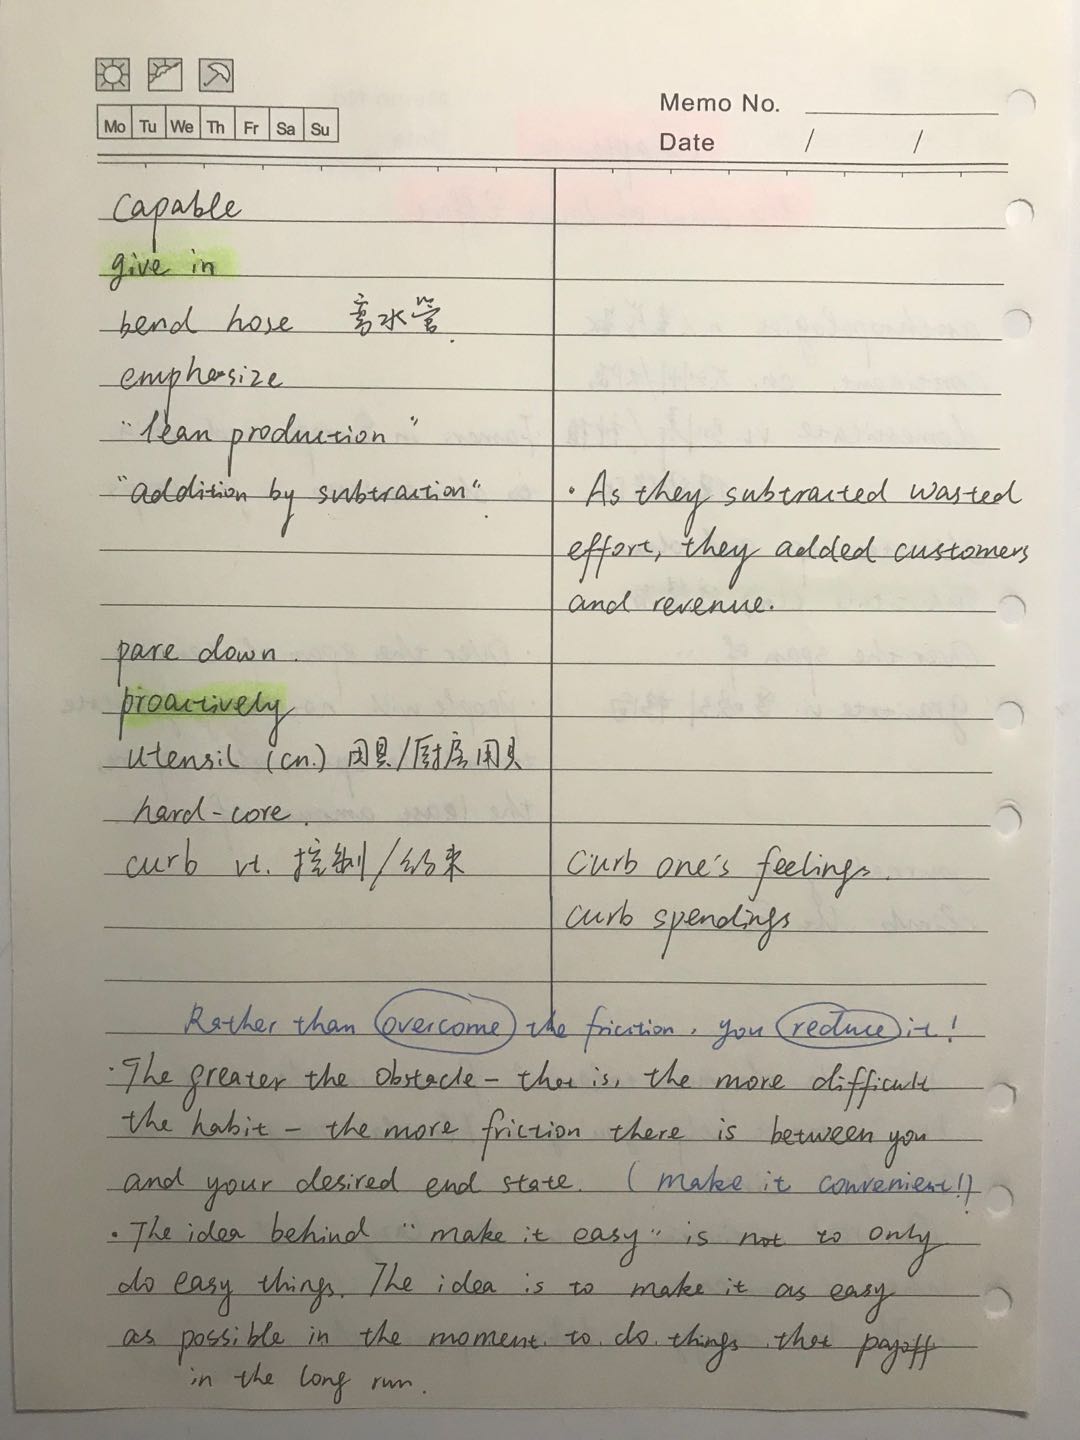 Memo No.
Mo Tu We Th Fr Sa Su
Date / /
capable
give in
bend hose 弯水管.
emphasize
"lean production"
"addition by subtraction". · As they subtracted wasted
effort, they added customers
and revenue.
pare down.
proactively
utensil (cn.) 用具/厨房用具
hard-core.
curb vt. 控制/约束 curb one's feelings.
curb spendings
Rather than overcome the friction, you reduce it!
· The greater the obstacle - that is, the more difficult
the habit - the more friction there is between you
and your desired end state. (make it convenient!)
· The idea behind "make it easy" is not to only
do easy things. The idea is to make it as easy
as possible in the moment to do things that payoff
in the long run.